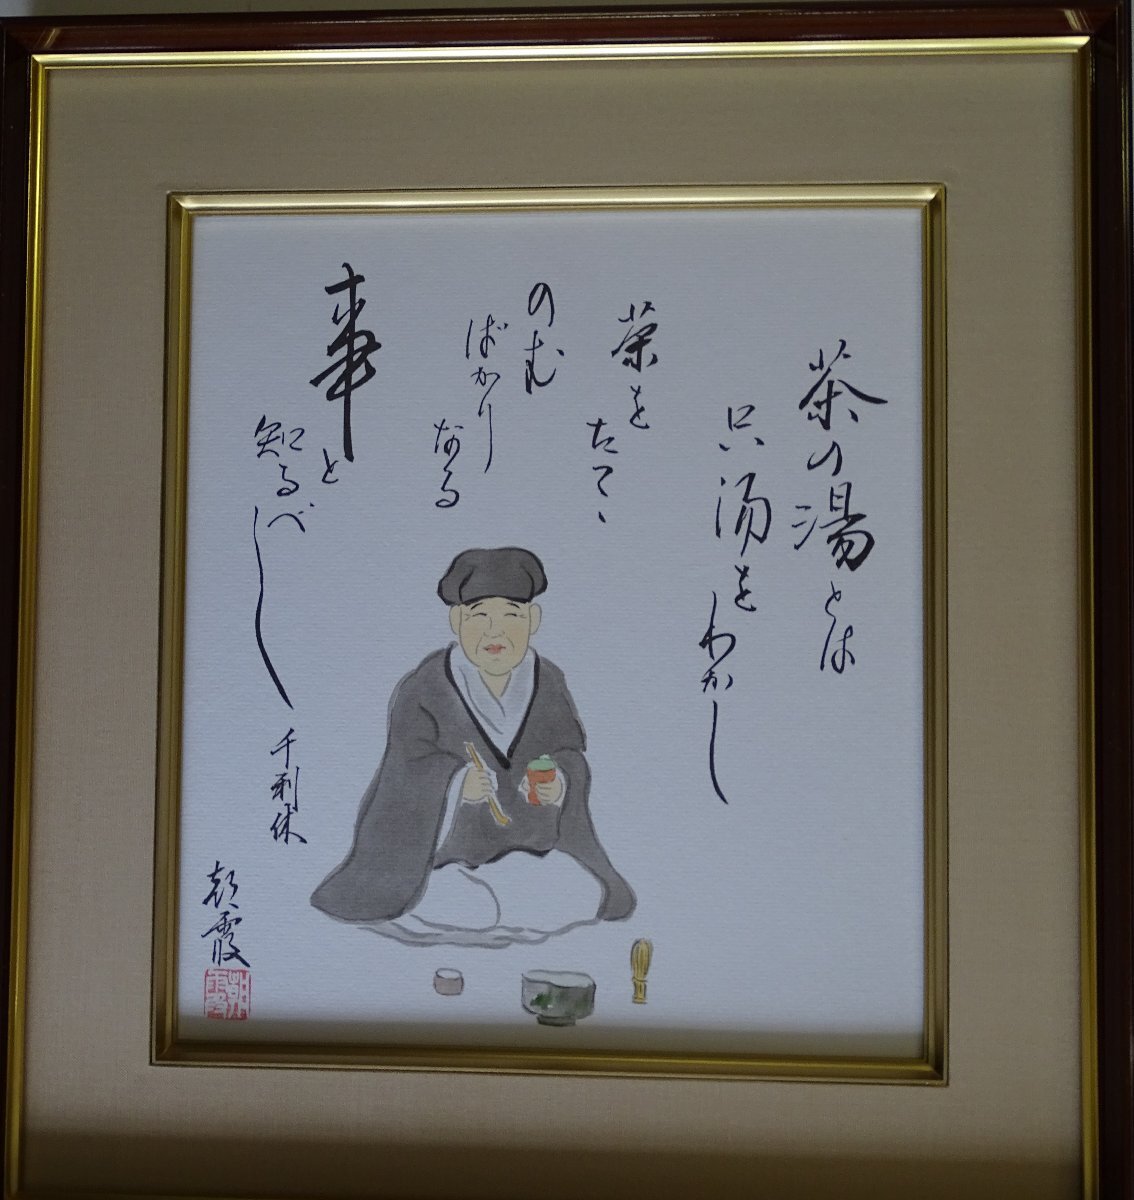 茶の湯とは
只湯をわかし
茶を
たてゝ
のむ
ばかり
なる
事と
知るべし
千利休